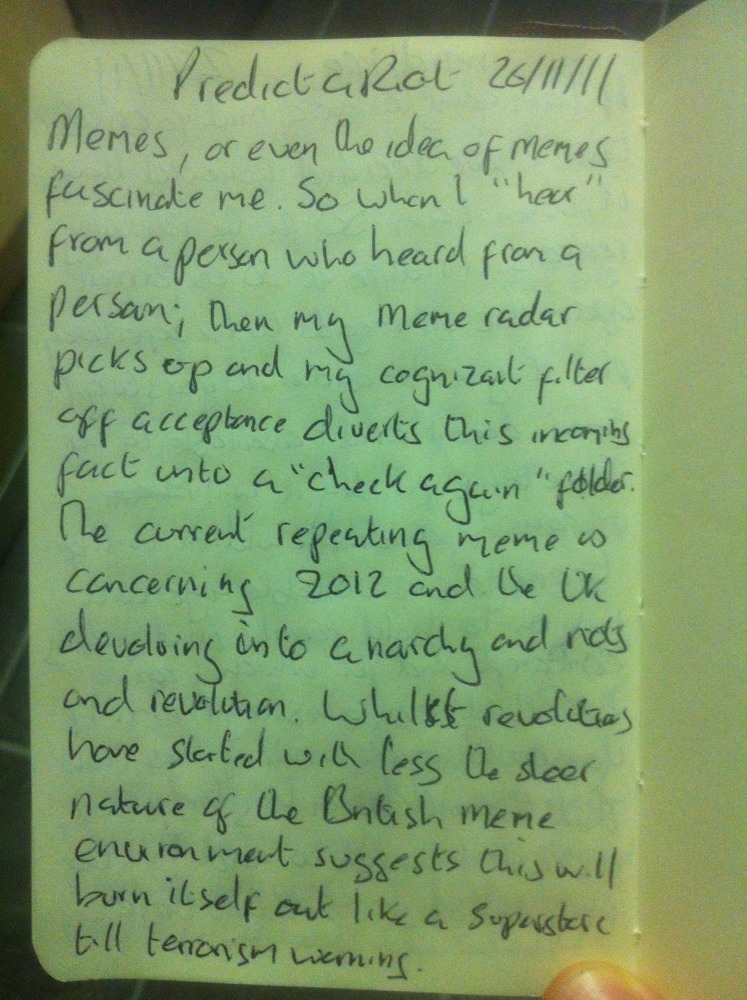 Predict a Riot 26/11/11
Memes, or even the idea of memes
fascinate me. So when I "hear"
from a person who heard from a
person; then my meme radar
picks up and my cognizant filter
off acceptance diverts this incoming
fact into a "check again" folder.
The current repeating meme is
concerning 2012 and the UK
devolving into anarchy and riots
and revolution. Whilst revolutions
have started with less the sheer
nature of the British meme
environment suggests this will
burn itself out like a superstore
till terrorism warning.